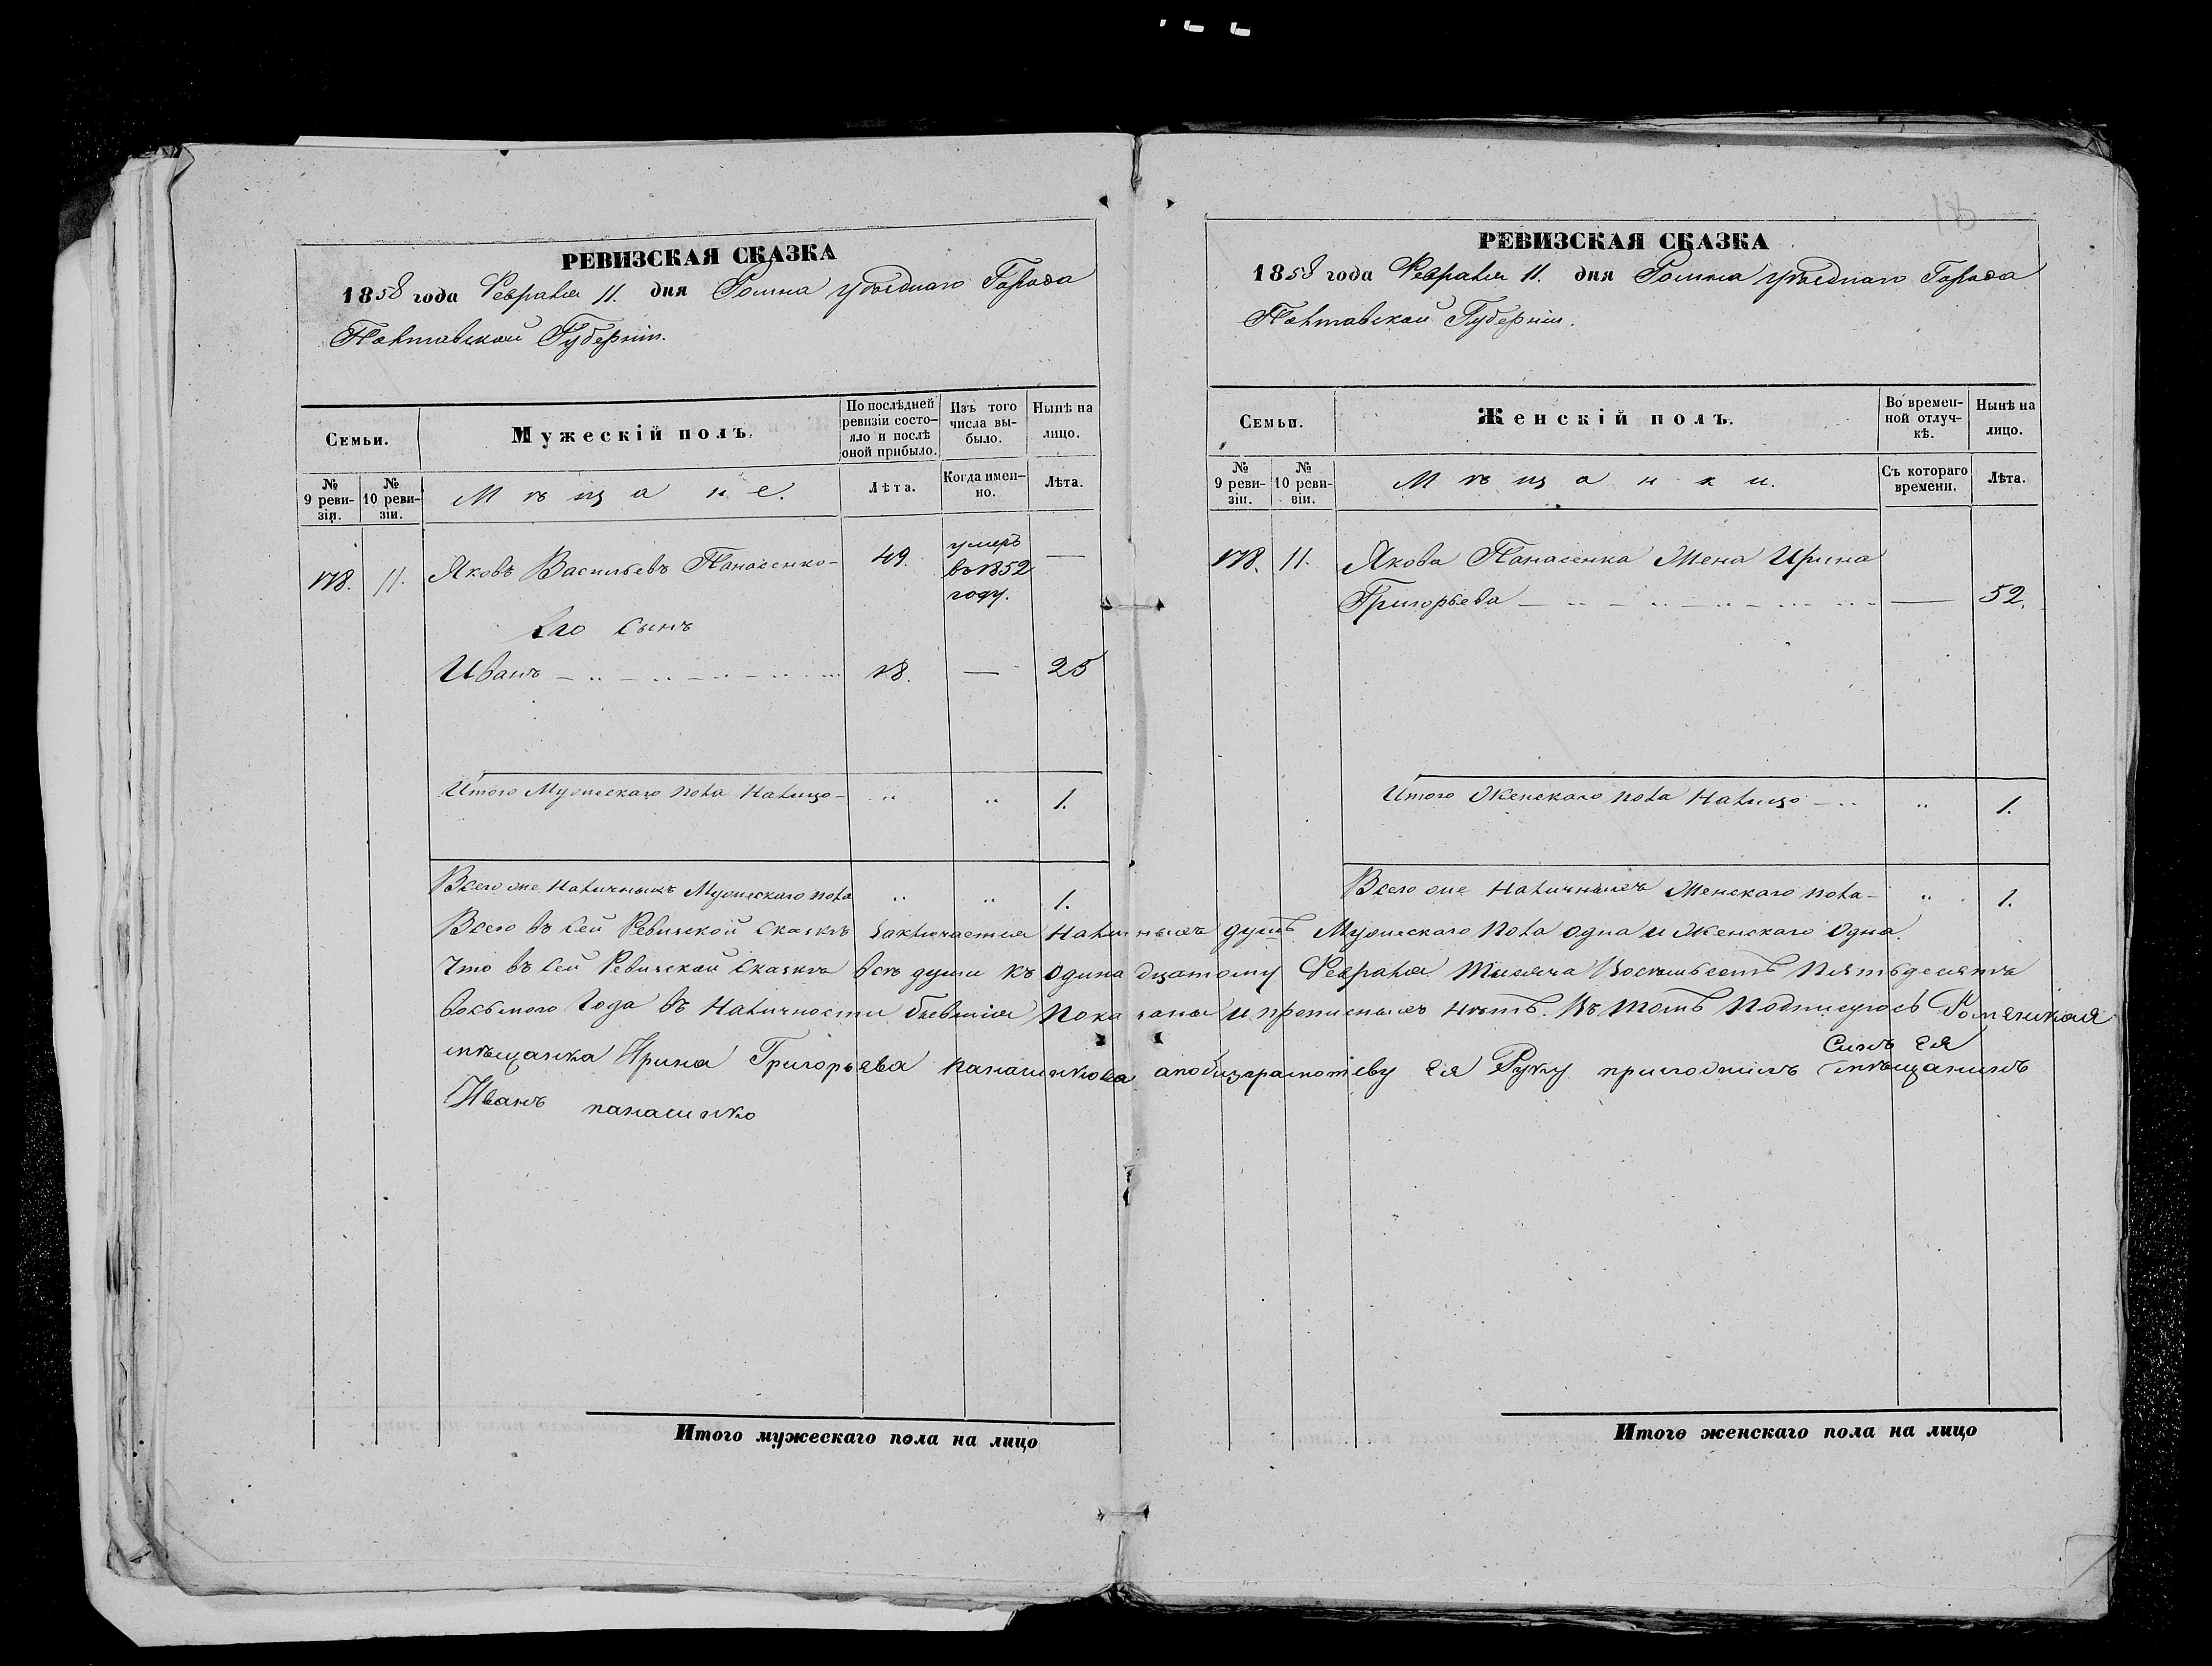 РЕВИЗСКАЯ СКАЗКА
1858 года Февраля 11. дня Ромна уѣзднаго Города
Полтавской Губерніи.
Семьи.
Мужескій полъ.
По послѣдней ревизіи состояло и послѣ оной прибыло.
Изъ того числа выбыло.
Нынѣ на лицо.
№ 9 ревизіи.
№ 10 ревизіи.
Мѣщане.
Лѣта.
Когда именно.
Лѣта.
178. 11. Яковъ Васильевъ Панасенко- 49. умеръ въ 1852 году. —
Его Сынъ
Иванъ 18. — 25
Итого Мужескаго пола Налицо- 1.
Всего же Наличныхъ Мужескаго пола 1.
РЕВИЗСКАЯ СКАЗКА
1858 года Февраля 11. дня Ромна уѣзднаго Города
Полтавской Губерніи.
18
Семьи.
Женскій полъ.
Во временной отлучкѣ.
Нынѣ на лицо.
№ 9 ревизіи.
№ 10 ревизіи.
Мѣщанки.
Съ котораго времени.
Лѣта.
178. 11. Якова Панасенка Жена Ирина
Григорьева — 52.
Итого Женскаго пола Налицо 1.
Всего же Наличныхъ Женскаго пола- 1.
Всего въ сей Ревизской Сказкѣ заключается Наличныхъ душъ Мужескаго Пола одна и Женскаго Одна.
Что въ сей Ревизской Сказкѣ всѣ души къ одинадцатому Февраля Тысяча Восемьсотъ Пятьдесятъ
восьмого Года въ Наличности бывшія показаны и прописныхъ нѣтъ. Въ томъ Подписуюсь Роменская
мѣщанка Ирина Григорьява панашнкова Ея Руку Синъ Ея мѣщанинъ
Иванъ панашнко
Итого мужескаго пола на лицо
Итого женскаго пола на лицо